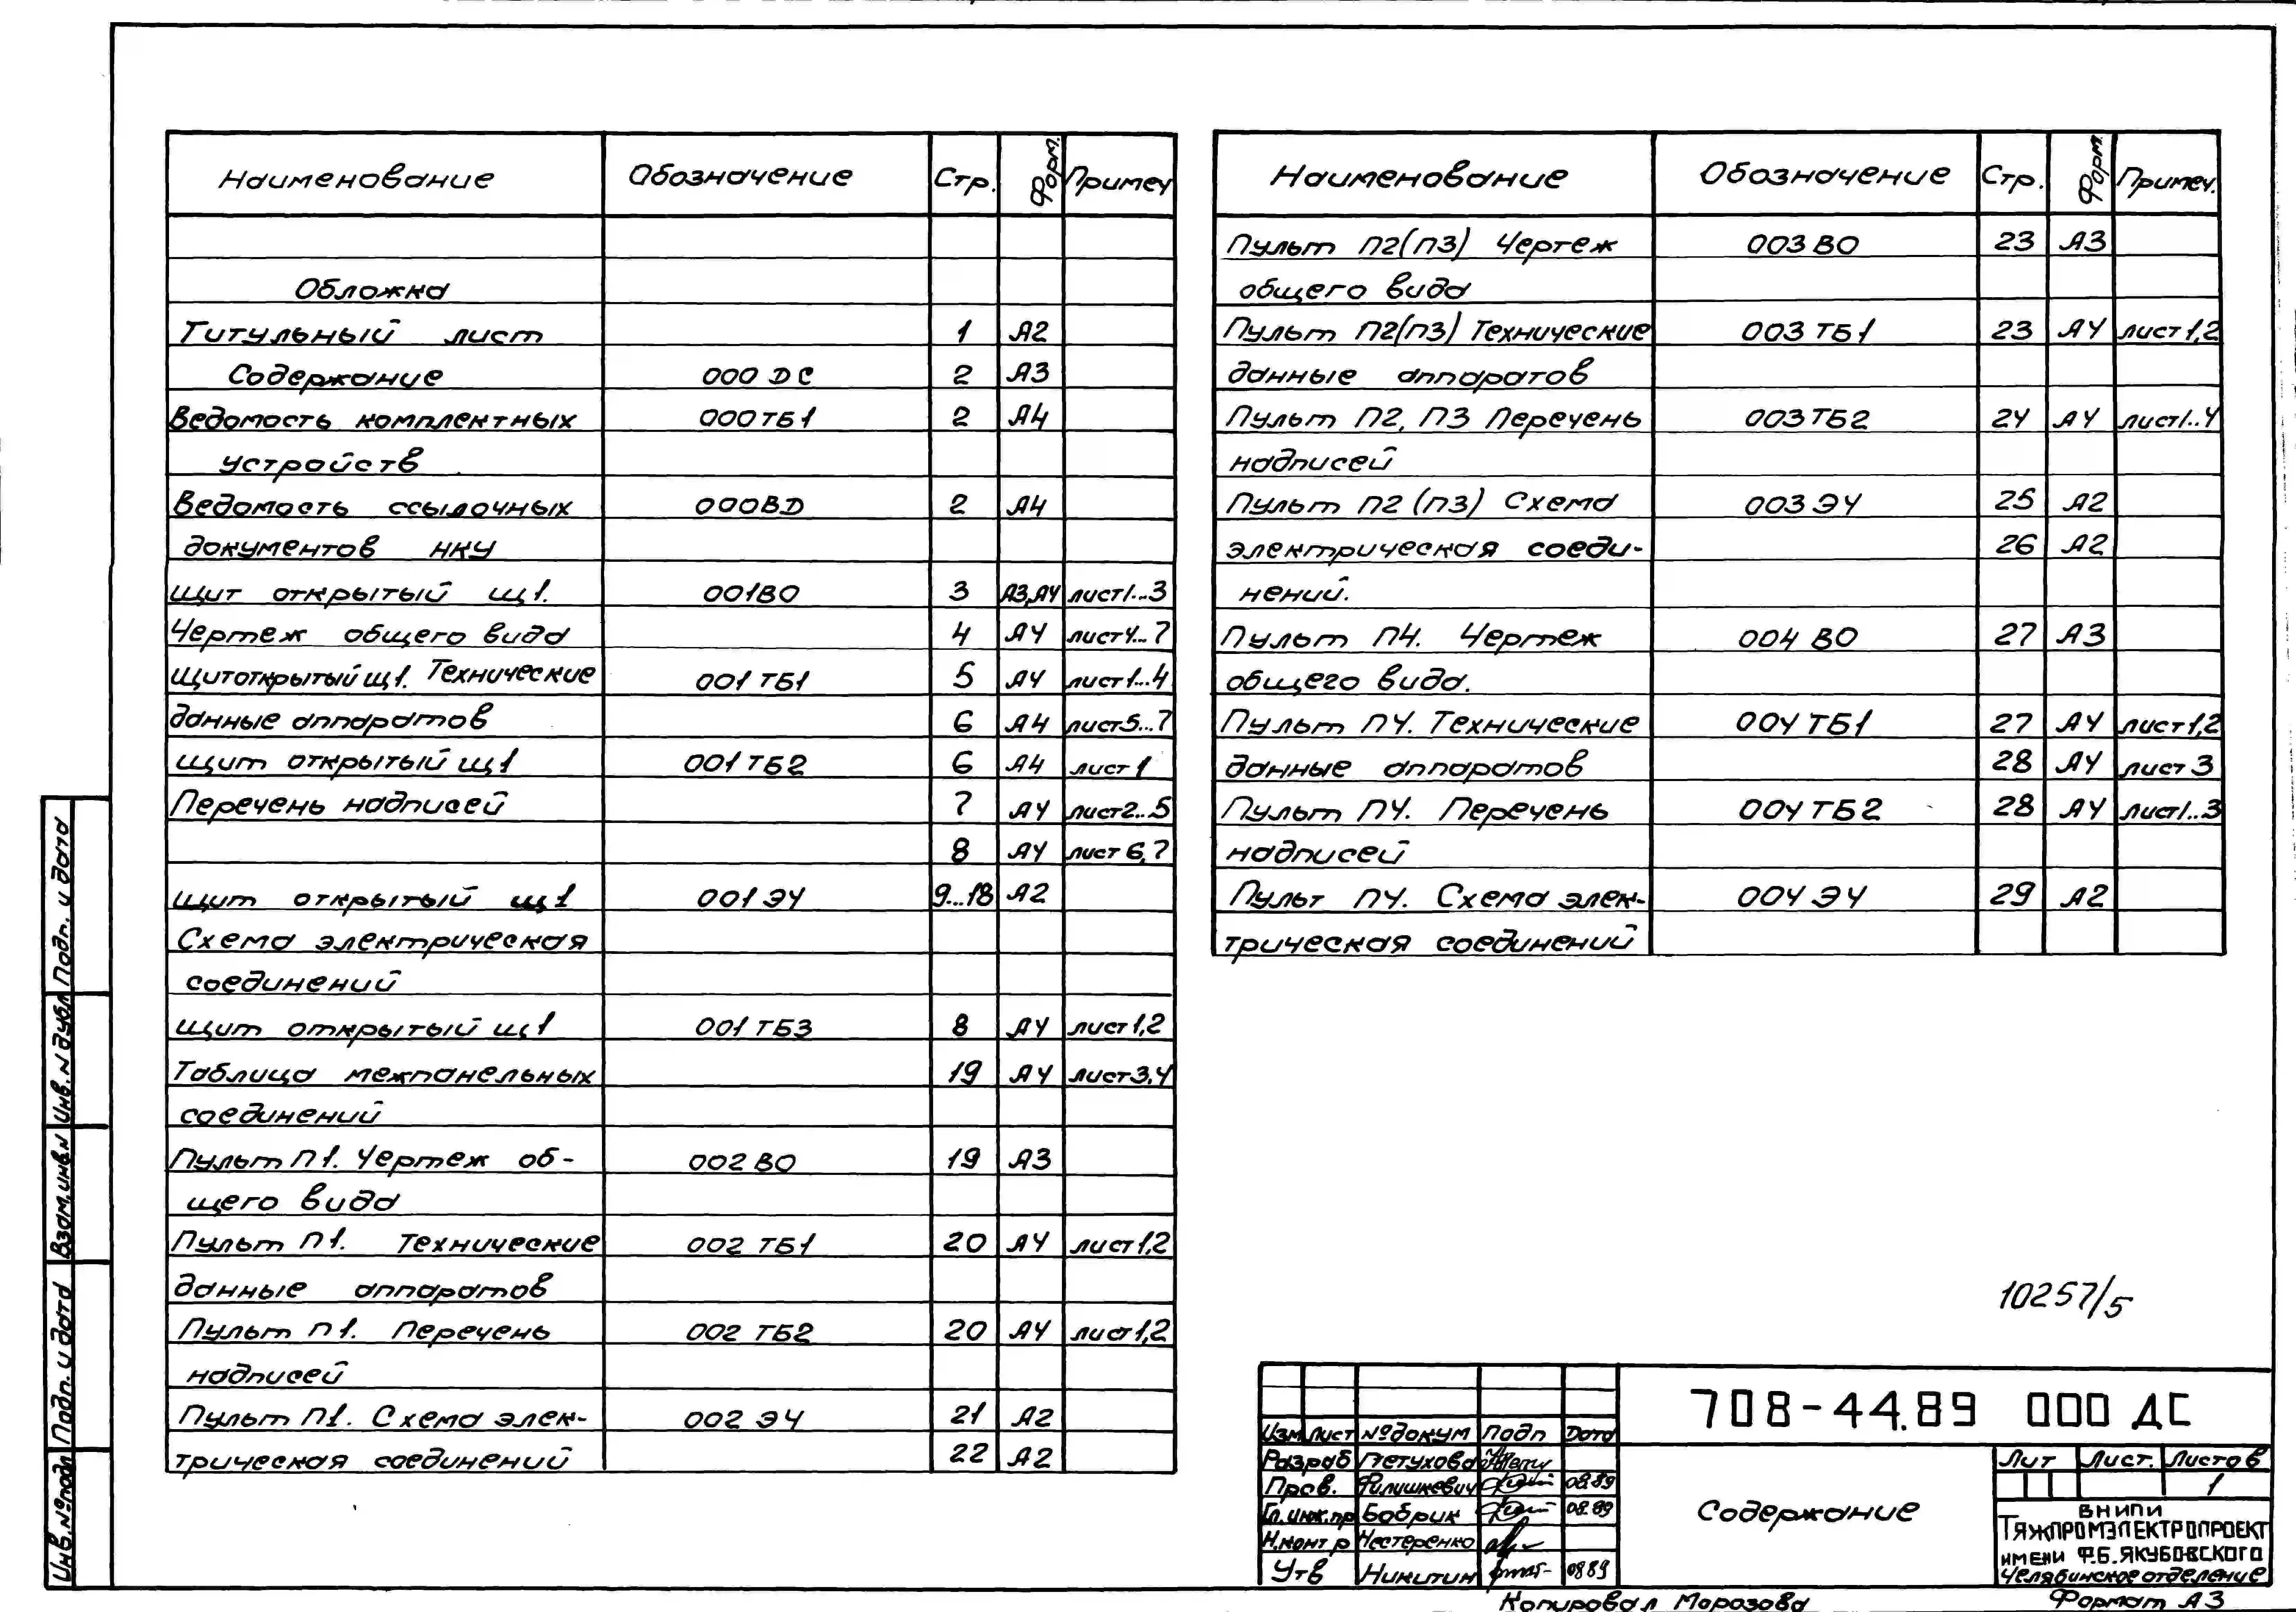 Наименование Обозначение Стр. Форм. Примеч
Обложка
Титульный лист 1 А2
Содержание 000 ДС 2 А3
Ведомость комплектных 000ТБ1 2 А4
устройств
Ведомость ссылочных 000ВД 2 А4
документов НКУ
Щит открытый Щ1. 001ВО 3 А3,А4 лист1...3
Чертеж общего вида 4 А4 лист4...7
Щит открытый Щ1. Технические 001 ТБ1 5 А4 лист1...4
данные аппаратов 6 А4 лист5...7
Щит открытый Щ1 001 ТБ2 6 А4 лист 1
Перечень надписей 7 А4 лист2...5
8 А4 лист 6,7
Щит открытый Щ1 001 Э4 9...18 А2
Схема электрическая
соединений
Щит открытый Щ1 001 ТБ3 8 А4 лист1,2
Таблица межпанельных 19 А4 лист3,4
соединений
Пульт П1. Чертеж об-
002 ВО 19 А3
щего вида
Пульт П1. Технические 002 ТБ1 20 А4 лист1,2
данные аппаратов
Пульт П1. Перечень 002 ТБ2 20 А4 лист1,2
надписей
Пульт П1. Схема элек- 002 Э4 21 А2
трическая соединений 22 А2
Наименование Обозначение Стр. Форм. Примеч.
Пульт П2(П3) Чертеж 003 ВО 23 А3
общего вида
Пульт П2(П3) Технические 003 ТБ1 23 А4 лист1,2
данные аппаратов
Пульт П2, П3 Перечень 003ТБ2 24 А4 лист1..4
надписей
Пульт П2 (П3) Схема 003 Э4 25 А2
электрическая соеди- 26 А2
нений.
Пульт П4. Чертеж 004 ВО 27 А3
общего вида.
Пульт П4. Технические 004 ТБ1 27 А4 лист1,2
данные аппаратов 28 А4 лист 3
Пульт П4. Перечень 004 ТБ2 28 А4 лист1..3
надписей
Пульт П4. Схема элек- 004 Э4 29 А2
трическая соединений
10257/5
708-44.89 000 ДС
Изм Лист №докум Подп Дата
Разраб Петухова
Пров. Филишкевич 08.89
Гл.инж.пр Бобрик 08.89
Н.контр Нестеренко
Утв Никитин 0889
Содержание
Лит Лист. Листов
1
ВНИПИ
ТЯЖПРОМЭЛЕКТРОПРОЕКТ
ИМЕНИ Ф.Б.ЯКУБОВСКОГО
Челябинское отделение
Копировал Морозова Формат А3
Подп. и дата
Инв.N дубл
Взам.инв.N
Подп. и дата
Инв.№подл